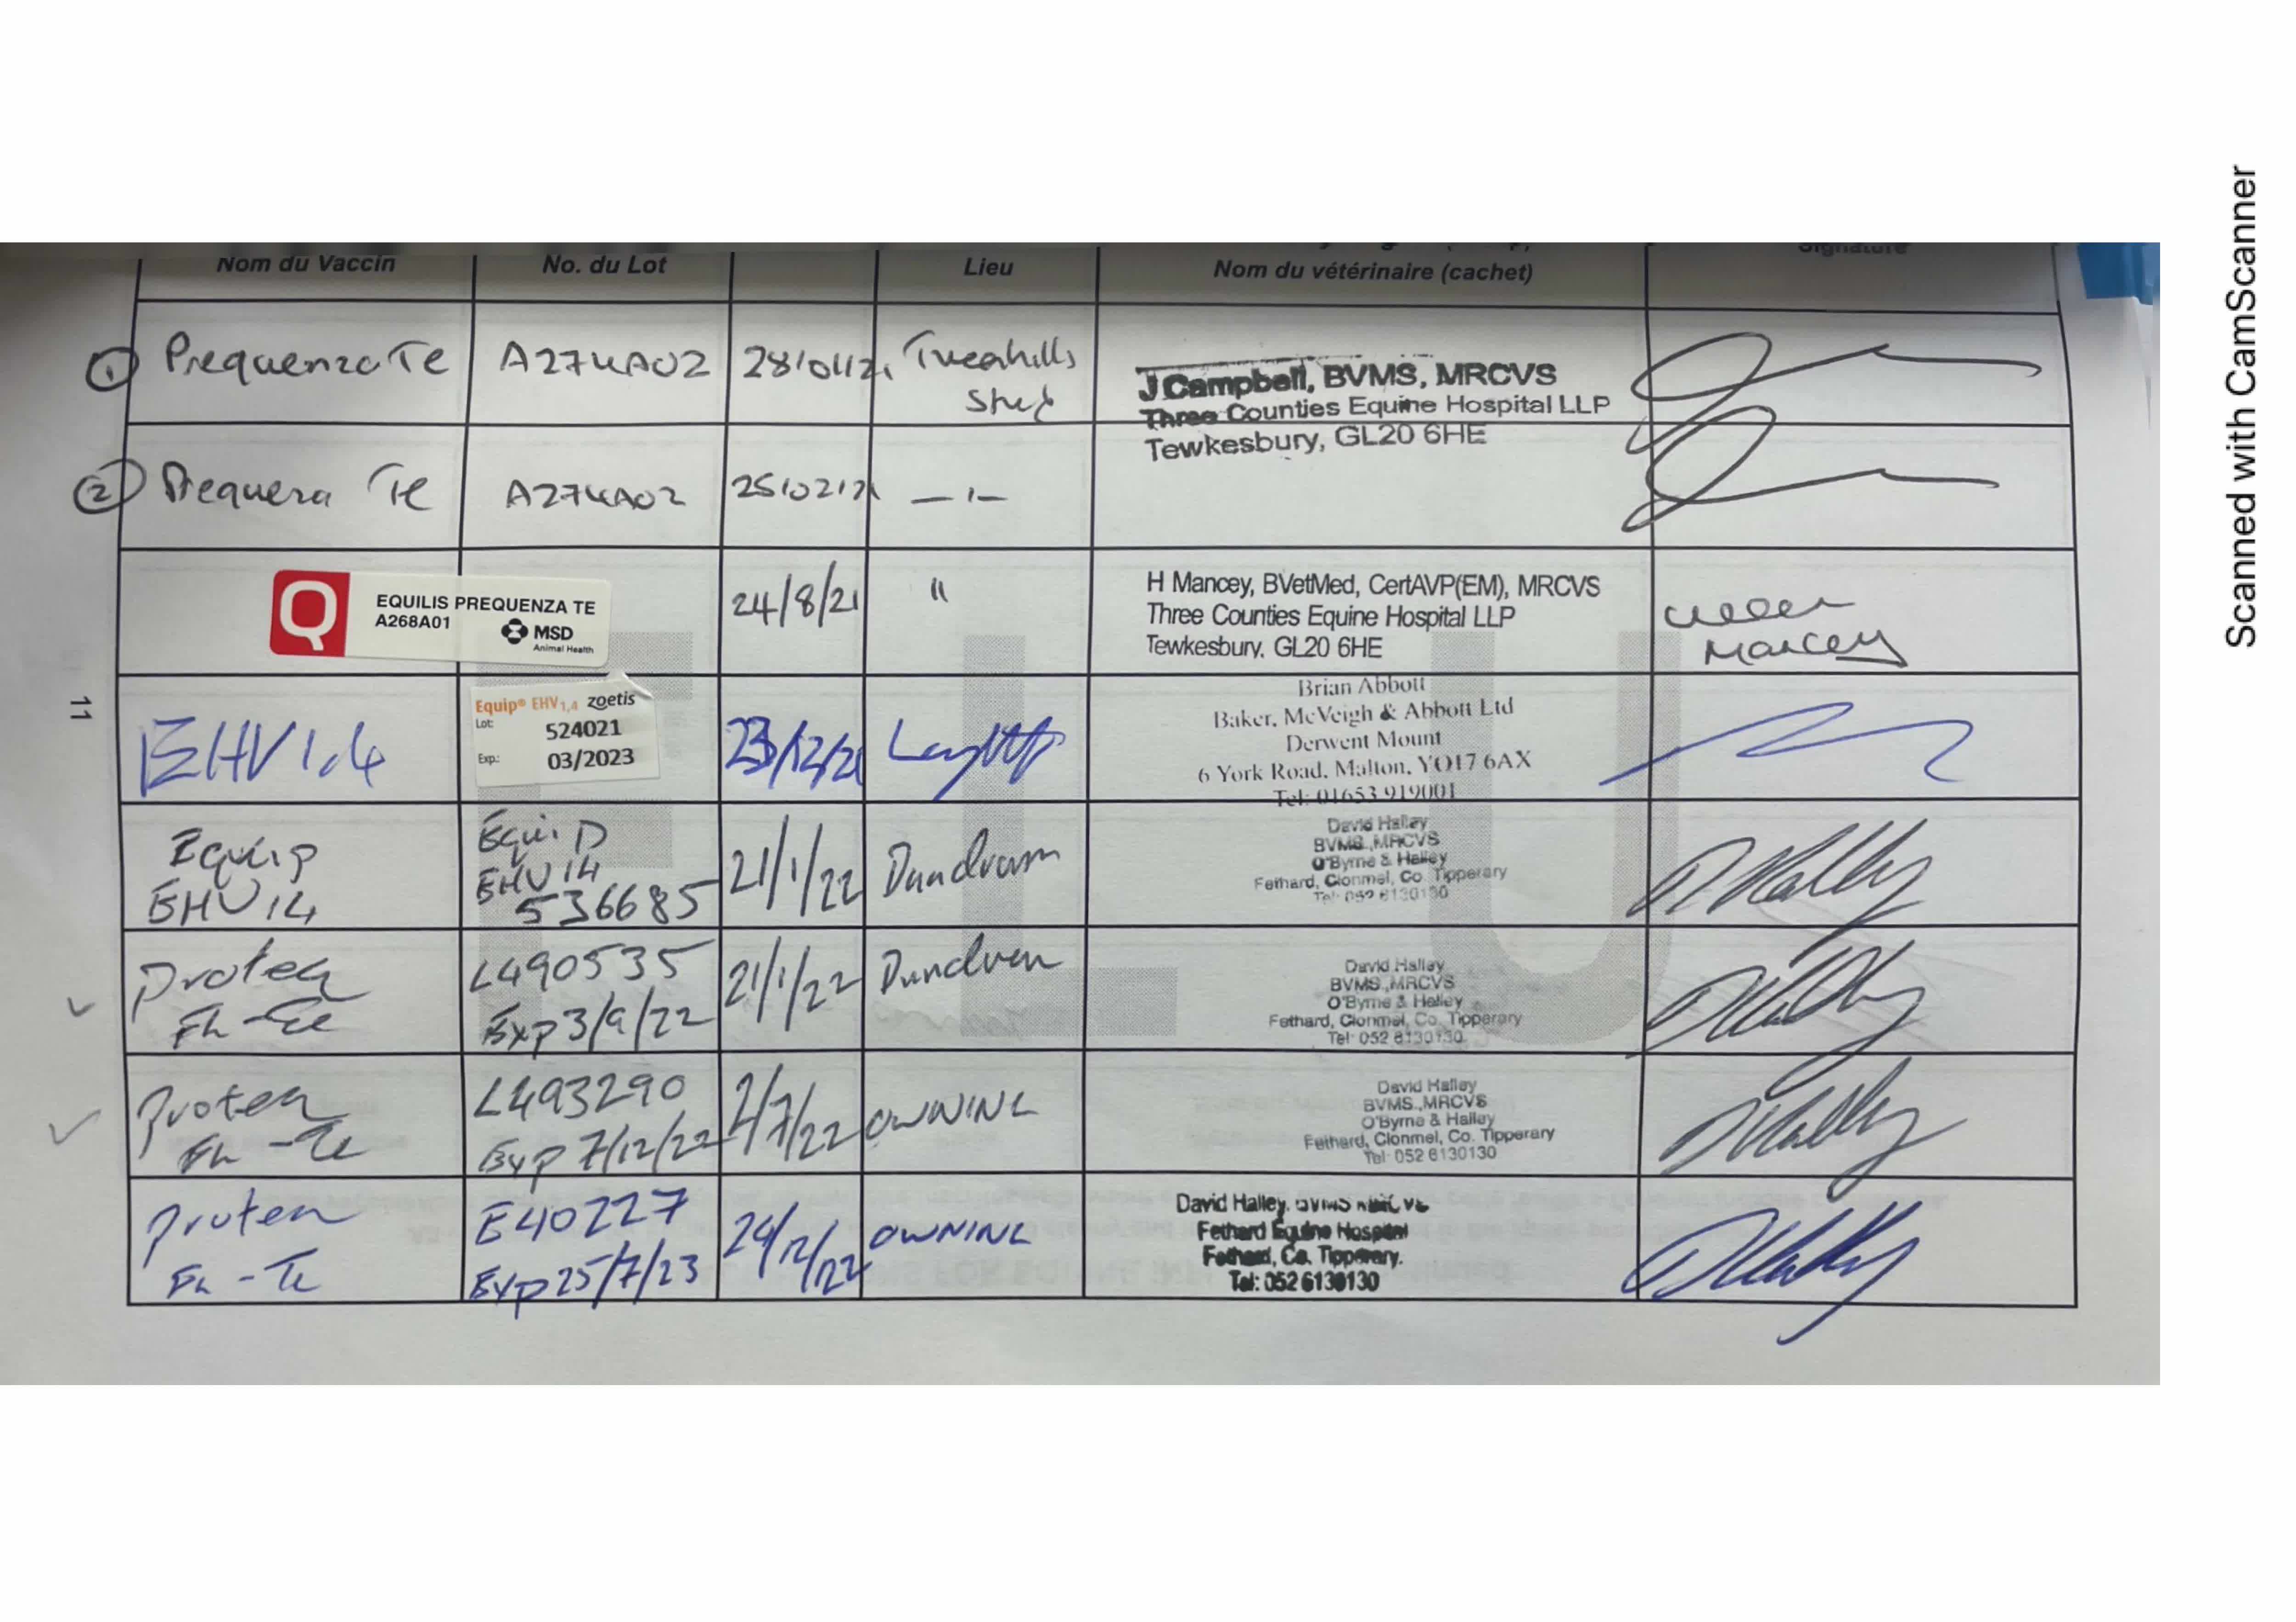 Nom du Vaccin No. du Lot Lieu Nom du vétérinaire (cachet) Signature
① Prequenza Te A274A02 28/01/21 Tweenhills Stud
J Campbell, BVMS, MRCVS
Three Counties Equine Hospital LLP
Tewkesbury, GL20 6HE
② Prequenza Te A274A02 25/02/21 —ı—
EQUILIS PREQUENZA TE
A268A01
MSD
Animal Health
24/8/21 "
H Mancey, BVetMed, CertAVP(EM), MRCVS
Three Counties Equine Hospital LLP
Tewkesbury, GL20 6HE
Mancey
11
EHV 1,4
Equip® EHV 1,4 zoetis
Lot: 524021
Exp.: 03/2023
23/12/21
Brian Abbott
Baker, McVeigh & Abbott Ltd
Derwent Mount
6 York Road, Malton, YO17 6AX
Tel: 01653 919001
Equip
EHV 14
Equip
EHV 14
536685
21/1/22 Dundrum
David Halley
BVMS, MRCVS
O'Byrne & Halley
Fethard, Clonmel, Co. Tipperary
Tel: 052 6130130
Proteq
Fh - Te
L490535
Exp 3/9/22
21/1/22 Dundrum
David Halley
BVMS, MRCVS
O'Byrne & Halley
Fethard, Clonmel, Co. Tipperary
Tel: 052 6130130
Proteq
Fh - Te
L493290
Exp 7/12/22
2/7/22 OWNING
David Halley
BVMS, MRCVS
O'Byrne & Halley
Fethard, Clonmel, Co. Tipperary
Tel: 052 6130130
Proteq
Fh - Te
E40227
Exp 25/7/23
24/12/22 OWNING
David Halley, BVMS MRCVS
Fethard Equine Hospital
Fethard, Co. Tipperary.
Tel: 052 6130130
Scanned with CamScanner